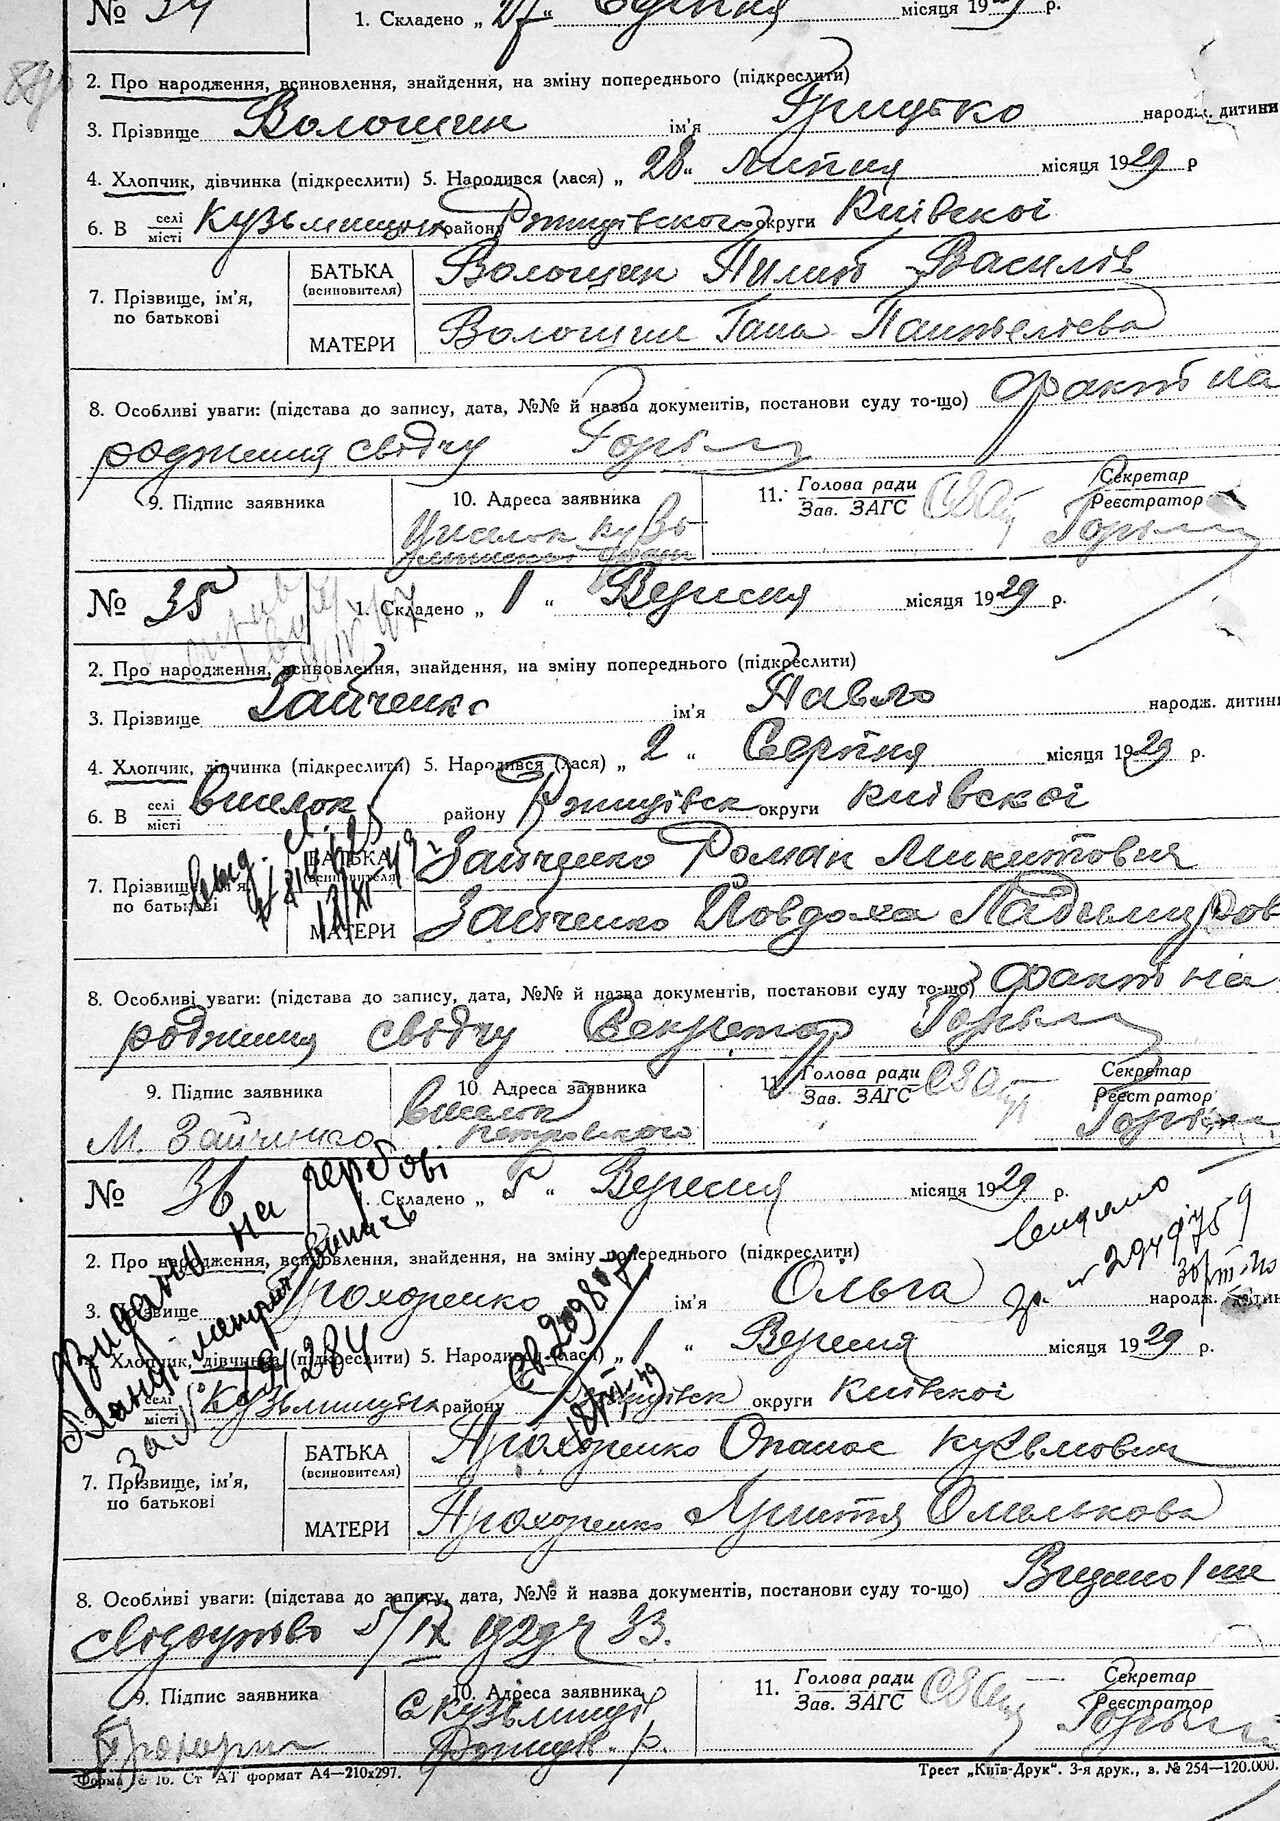 № 34 1. Складено „ 27 “ Серпня місяця 1929 р.
2. Про народження, всиновлення, знайдення, на зміну попереднього (підкреслити)
3. Прізвище Волошин ім'я Грицько народж. дитини
4. Хлопчик, дівчинка (підкреслити) 5. Народився (лася) „ 28 “ липня місяця 1929 р
6. В селі місті Кузьминцях району Ржищівского округи Київскоі
7. Прізвище, ім'я, по батькові
БАТЬКА (всиновителя) Волощин Пилип Василів
МАТЕРИ Волошин Гана Пантеліева
8. Особливі уваги: (підстава до запису, дата, №№ й назва документів, постанови суду то-що) факт на
родження свідчу
9. Підпис заявника
10. Адреса заявника
11. Голова ради Зав. ЗАГС
Секретар Реєстратор
№ 35 1. Складено „ 1 “ Вересня місяця 1929 р.
2. Про народження, всиновлення, знайдення, на зміну попереднього (підкреслити)
3. Прізвище Зайченко ім'я Павло народж. дитини
4. Хлопчик, дівчинка (підкреслити) 5. Народився (лася) „ 2 “ Серпня місяця 1929 р.
6. В селі місті Виселок району Ржищівск округи Київскоі
7. Прізвище, ім'я, по батькові
БАТЬКА (всиновителя) Зайченко Роман Микитович
МАТЕРИ Зайченко Йовдоха Ладымиров
8. Особливі уваги: (підстава до запису, дата, №№ й назва документів, постанови суду то-що) факт на
родження свідчу Секретар
9. Підпис заявника
М. Зайченко
10. Адреса заявника
Виселок
петровского
11. Голова ради Зав. ЗАГС
Секретар Реєстратор
№ 36 1. Складено „ 5 “ Вересня місяця 1929 р.
Видано на гербові
2. Про народження, всиновлення, знайдення, на зміну попереднього (підкреслити)
видано
2949759
3. Прізвище Прохоренко ім'я Ольга народж. дитини
4. Хлопчик, дівчинка (підкреслити) 5. Народився (лася) „ 1 “ Вересня місяця 1929 р.
6. В селі місті Кузьминцях району Ржищівск округи Київскоі
7. Прізвище, ім'я, по батькові
БАТЬКА (всиновителя) Прохоренко Опанас Кузьмович
МАТЕРИ Прохоренко Христя Омелькова
8. Особливі уваги: (підстава до запису, дата, №№ й назва документів, постанови суду то-що) Видано
свідоцтво 5/IX 1929 33.
9. Підпис заявника
10. Адреса заявника
с Кузьминці
Ржищів. р.
11. Голова ради Зав. ЗАГС
Секретар Реєстратор
Форма № 16. Ст АТ формат А4—210x297.
Трест „Київ-Друк“. 3-я друк., з. № 254—120.000.